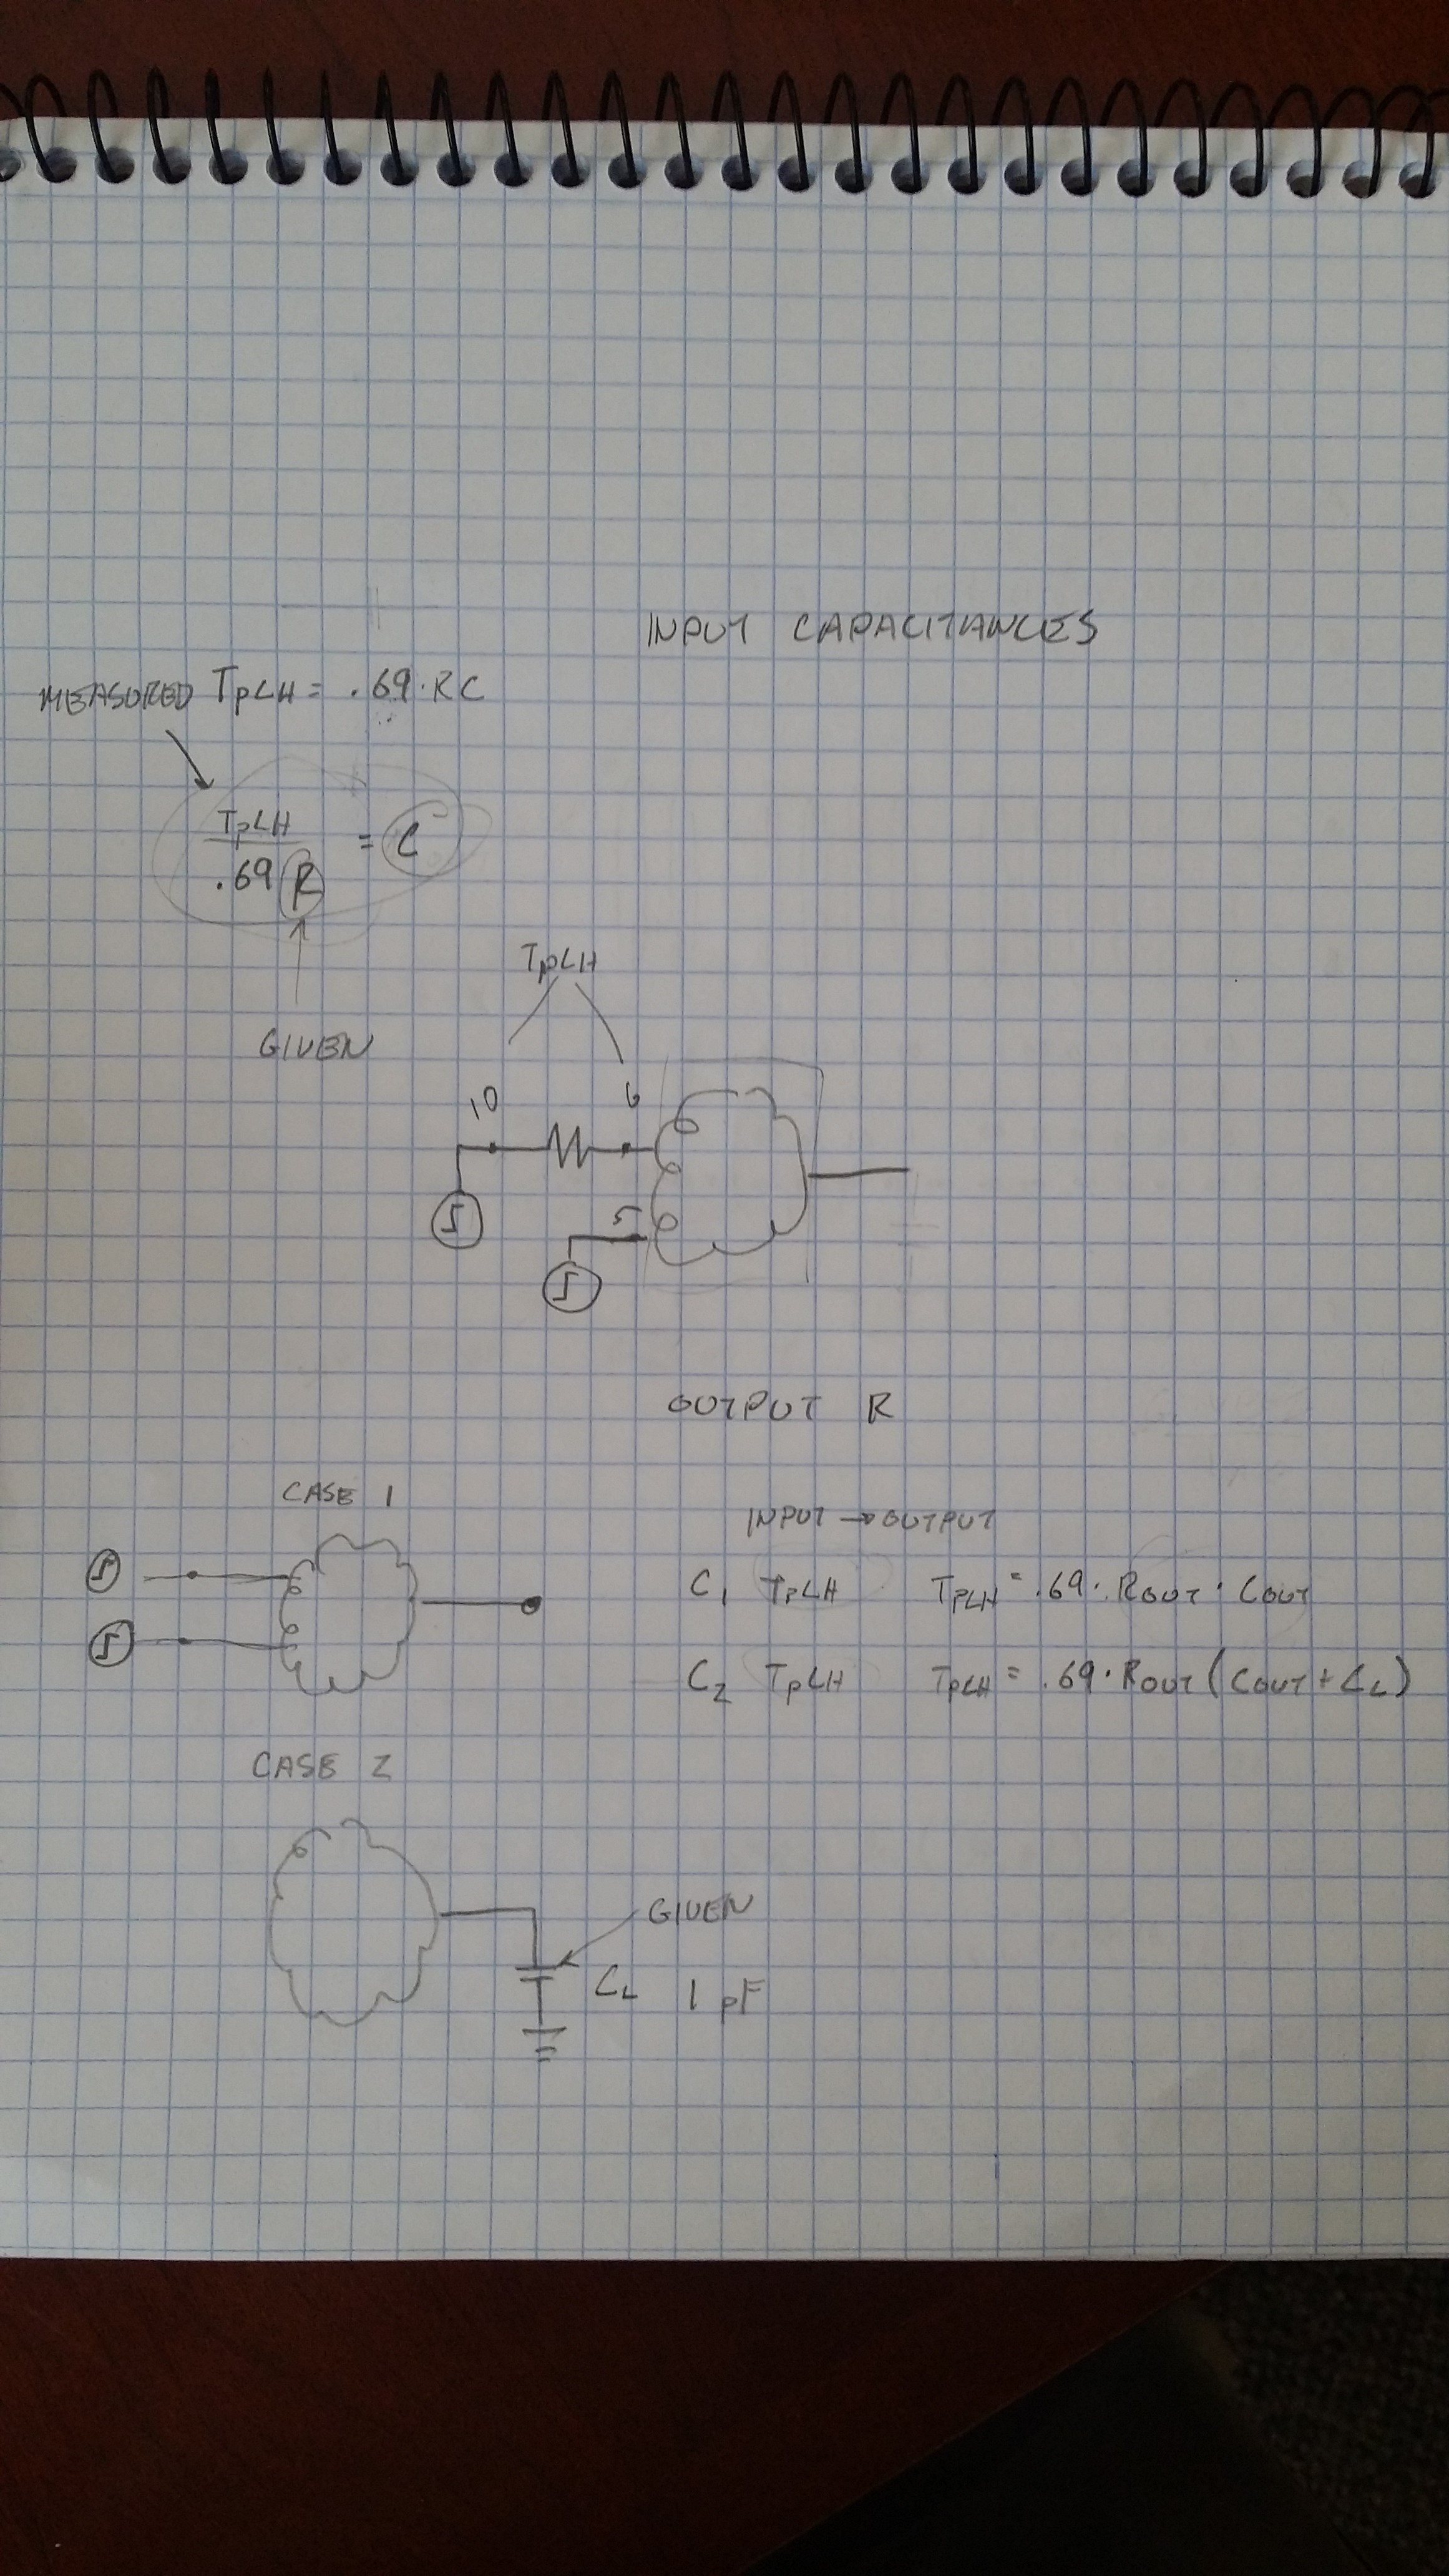 INPUT CAPACITANCES
MEASURED TpLH = .69·RC
TpLH
.69 R = C
GIVEN
TpLH
10 6
5
OUTPUT R
CASE 1
INPUT → OUTPUT
C1 TpLH TpLH = .69·ROUT·COUT
C2 TpLH TpLH = .69·ROUT(COUT+CL)
CASE 2
GIVEN
CL 1 pF